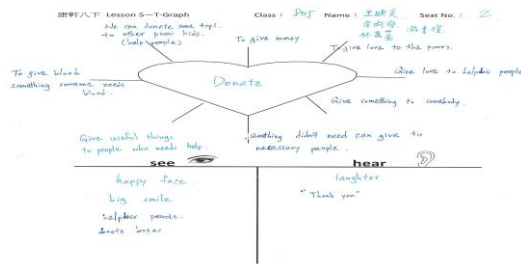 康軒八下 Lesson 5—T-Graph Class: Name: Seat No.: 2
We can donate some toys.
to other poor kids.
(help people)
To give money
To give love to the poors.
To give blood
something someone needs
blood.
Donate
Give love to helpless people
Give something to somebody.
Give useful things
to people who needs help.
Something didn't need can give to
necessary people.
see
hear
happy face.
big smile
helpless people.
donate boxes
laughter
"Thank you"